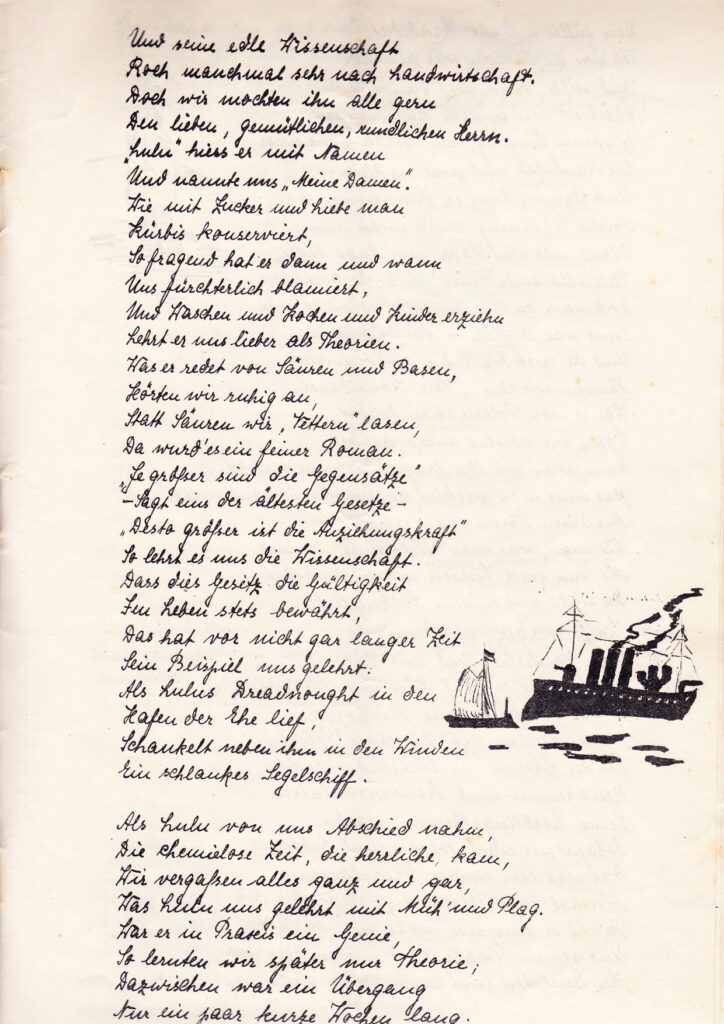 Und seine edle Wissenschaft
Roch manchmal sehr nach Landwirtschaft.
Doch wir mochten ihn alle gern
Den lieben, gemütlichen, rundlichen Herrn.
„Lulu" hiess er mit Namen
Und nannte uns „Meine Damen".
Wie mit Zucker und Liebe man
Kürbis konserviert,
So fragend hat er dann und wann
Uns fürchterlich blamiert,
Und Waschen und Kochen und Kinder erziehn
Lehrt er uns lieber als Theorien.
Was er redet von Säuren und Basen,
Hörten wir ruhig an,
Statt Säuren wir „Vettern" lasen,
Da wurd' es ein feiner Roman.
„Je größer sind die Gegensätze"
- Sagt eins der ältesten Gesetze -
„Desto größer ist die Anziehungskraft"
So lehrt es uns die Wissenschaft.
Dass dies Gesetz die Gültigkeit
Im Leben stets bewährt,
Das hat vor nicht gar langer Zeit
Sein Beispiel uns gelehrt:
Als Lulus Dreadnought in den
Hafen der Ehe lief,
Schaukelt neben ihm in den Winden
Ein schlankes Segelschiff.
Als Lulu von uns Abschied nahm,
Die chemielose Zeit, die herrliche, kam,
Wir vergaßen alles ganz und gar,
Was Lulu uns gelehrt mit Müh' und Plag.
War er in Praxis ein Genie,
So lernten wir später nur Theorie;
Dazwischen war ein Übergang
Nur ein paar kurze Wochen lang.